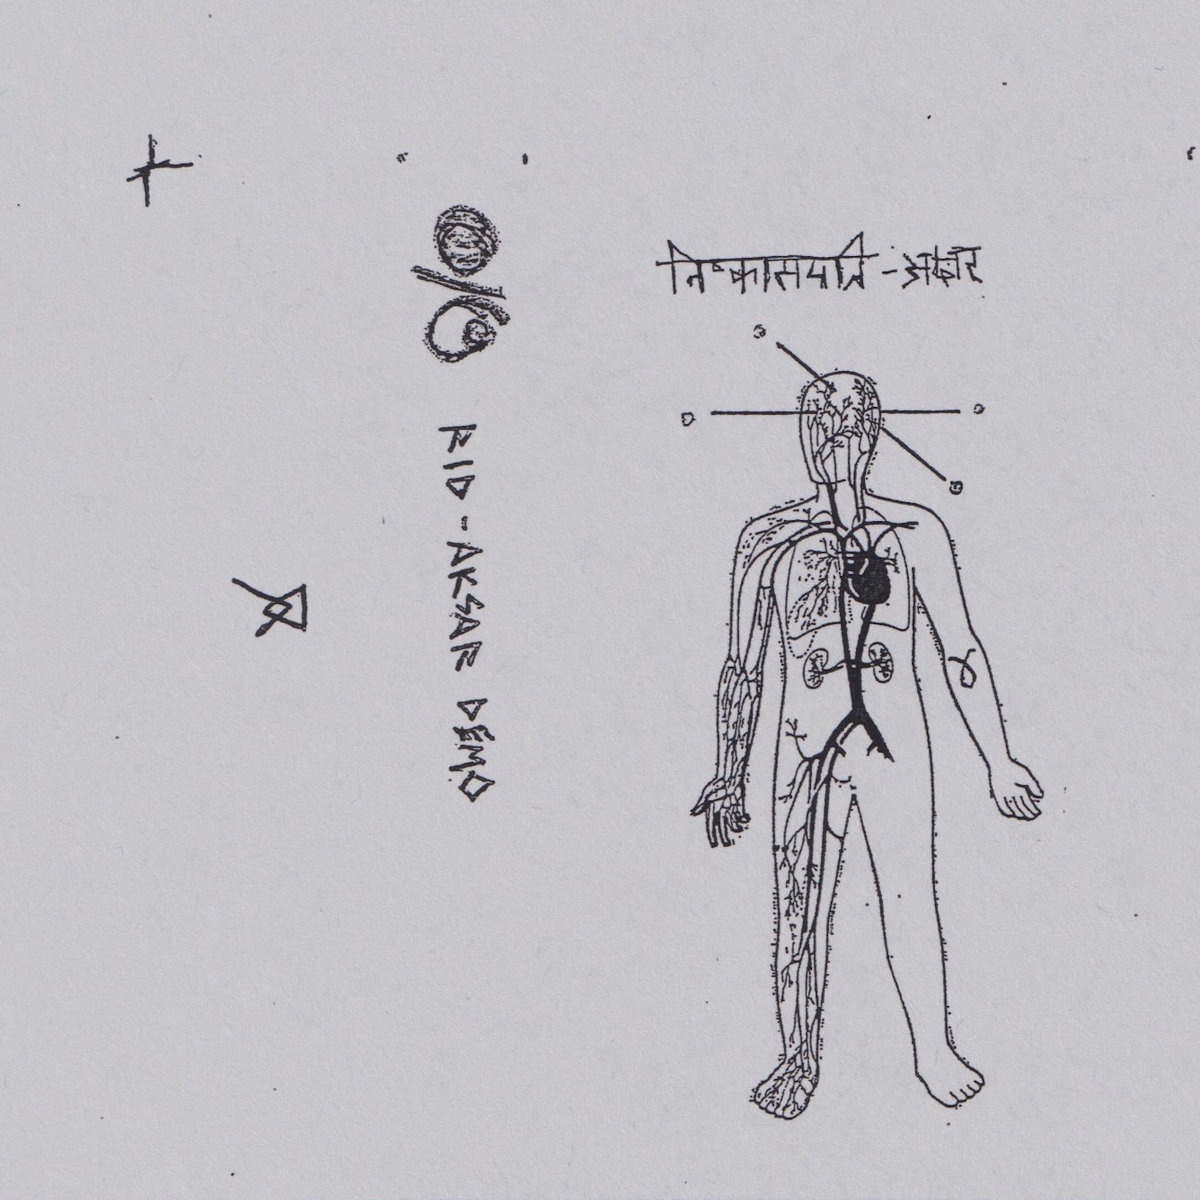 निष्कासयति - अक्षर
RID - AKSAR DEMO